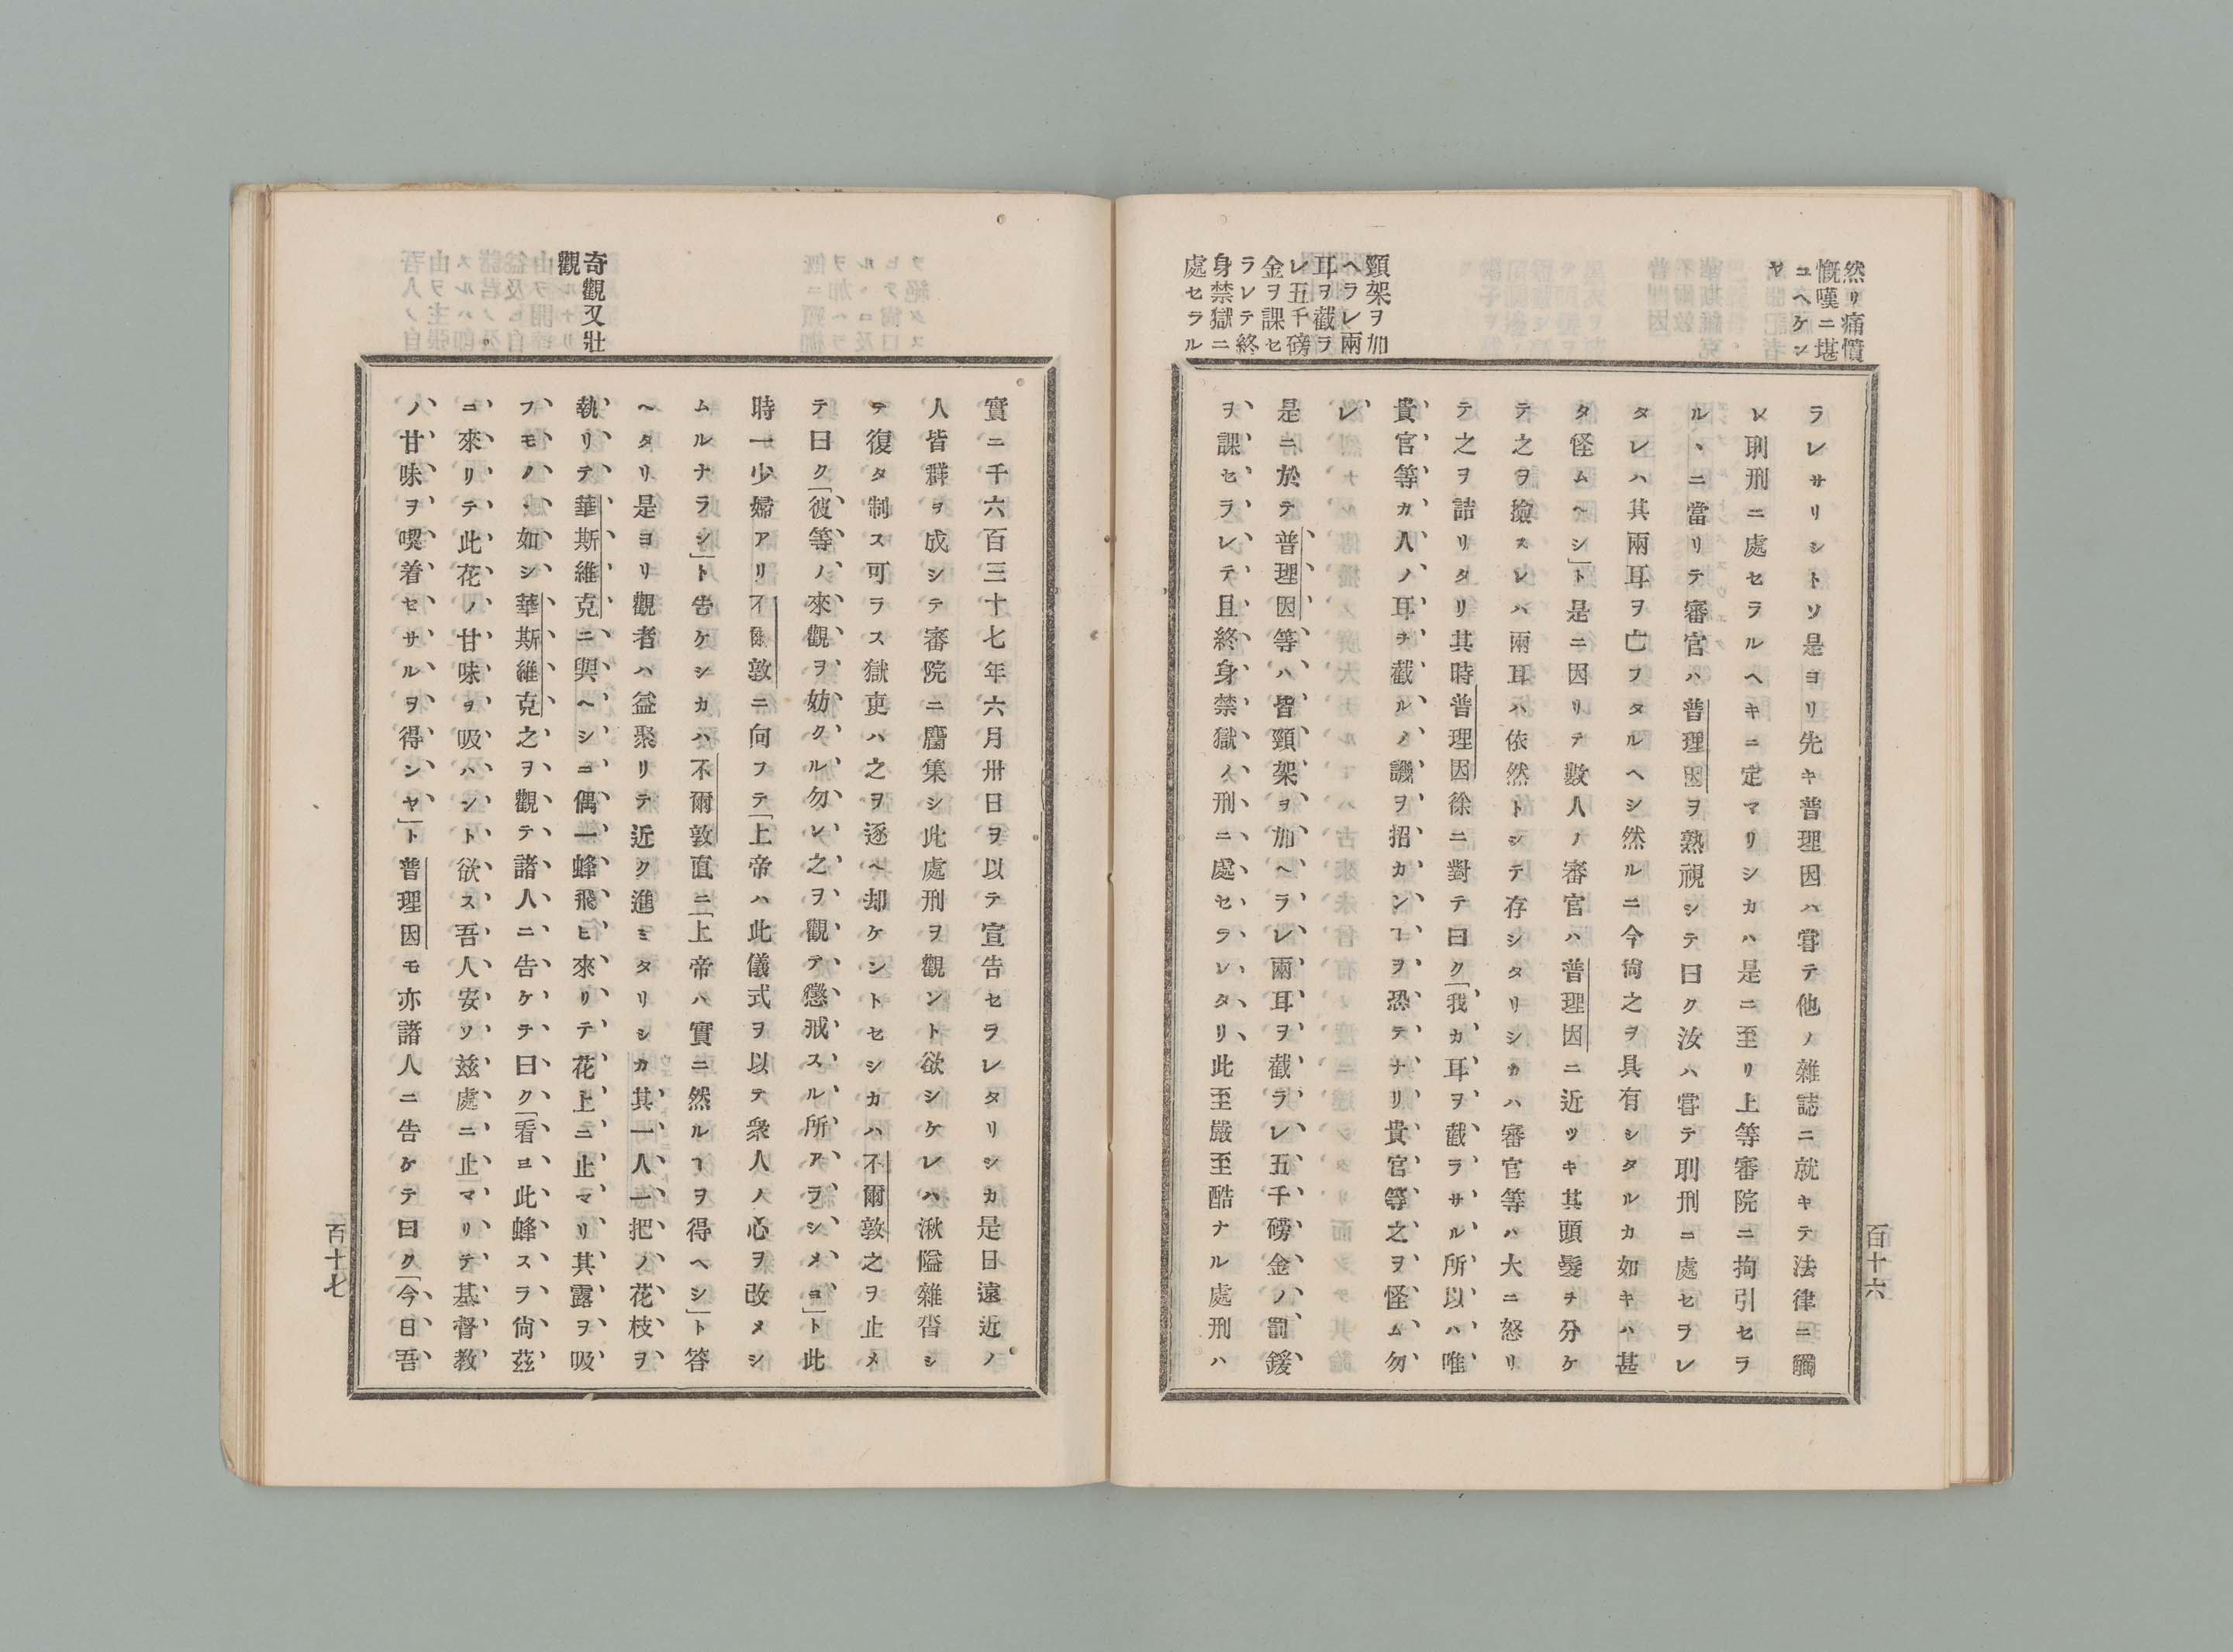 然リ痛憤
慨嘆ニ堪
ユヘケン
ヤ
頸架ヲ加
ヘラレ兩
耳ヲ截ラ
レ五千磅
金ヲ課セ
ラレテ終
身禁獄ニ
處セラル
ラレサリシトソ是ヨリ先キ普理因ハ甞テ他ノ雜誌ニ就キテ法律ニ觸
レ刵刑ニ處セラルヘキニ定マリシカハ是ニ至リ上等審院ニ拘引セラ
ルヽニ當リテ審官ハ普理因ヲ熟視シテ曰ク汝ハ甞テ刵刑ニ處セラレ
タレハ其兩耳ヲ亡フタルヘシ然ルニ今尙之ヲ具有シタルカ如キハ甚
タ怪ムヘシ」ト是ニ因リテ數人ノ審官ハ普理因ニ近ツキ其頭髮ヲ分ケ
テ之ヲ撿スレハ兩耳ハ依然トシテ存シタリシカハ審官等ハ大ニ怒リ
テ之ヲ詰リタリ其時普理因徐ニ對テ曰ク「我カ耳ヲ截ラサル所以ハ唯
貴官等カ人ノ耳ヲ截ルノ譏ヲ招カンヿヲ恐テナリ貴官等之ヲ怪ム勿
レ
是ニ於テ普理因等ハ皆頸架ヲ加ヘラレ兩耳ヲ截ラレ五千磅金ノ罰鍰
ヲ課セラレテ且終身禁獄ノ刑ニ處セラレタリ此至嚴至酷ナル處刑ハ
百十六
奇觀又壯
觀
實ニ千六百三十七年六月卅日ヲ以テ宣告セラレタリシカ是日遠近ノ
人皆群ヲ成シテ審院ニ麕集シ此處刑ヲ觀ント欲シケレハ湫隘雜沓シ
テ復タ制ス可ラス獄吏ハ之ヲ逐ヘ却ケントセシカハ不爾敦之ヲ止メ
テ曰ク「彼等ノ來觀ヲ妨クル勿レ之ヲ觀テ懲戒スル所アラシメヨ」ト此
時一少婦アリ不爾敦ニ向フテ「上帝ハ此儀式ヲ以テ衆人ノ心ヲ改メシ
ムルナラシ」ト告ケシカハ不爾敦直ニ「上帝ハ實ニ然ルヿヲ得ヘシ」ト答
ヘタリ是ヨリ觀者ハ益聚リテ近ク進ミタリシカ其一人一把ノ花枝ヲ
執リテ華斯維克ニ與ヘシニ偶一蜂飛ヒ來リテ花上ニ止マリ其露ヲ吸
フモノヽ如シ華斯維克之ヲ觀テ諸人ニ告ケテ曰ク「看ヨ此蜂スラ尙茲
ニ來リテ此花ノ甘味ヲ吸ハント欲ス吾人安ソ玆處ニ止マリテ基督教
ノ甘味ヲ喫着セサルヲ得ンヤ」ト普理因モ亦諸人ニ告ケテ曰ク「今日吾
百十七